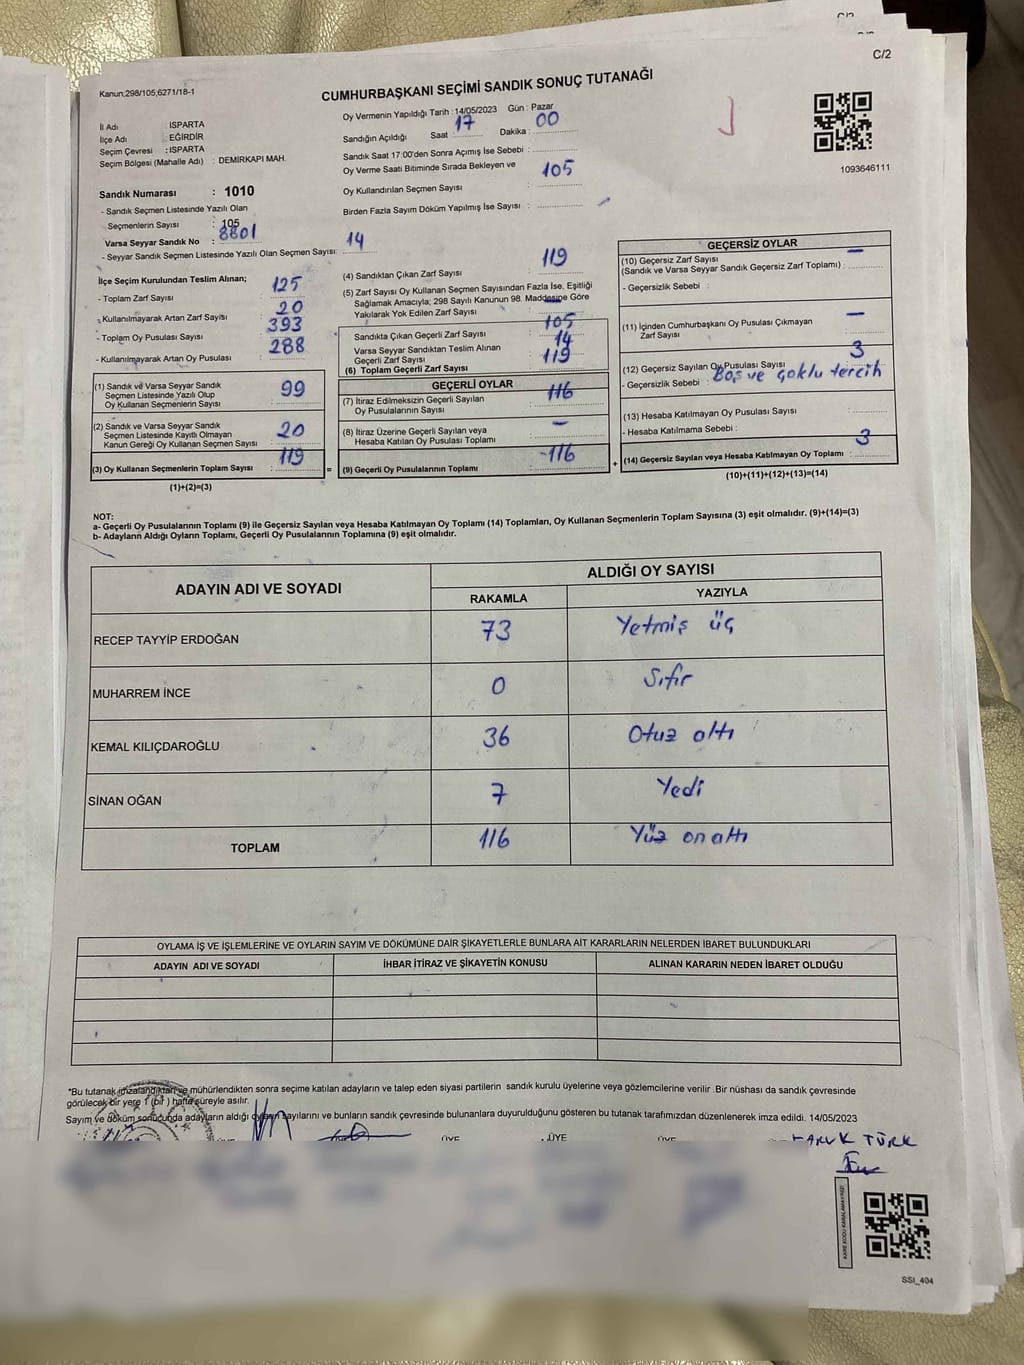 C/2
Kanun;298/105,6271/18-1
CUMHURBAŞKANI SEÇİMİ SANDIK SONUÇ TUTANAĞI
İl Adı : ISPARTA
İlçe Adı : EĞİRDİR
Seçim Çevresi : ISPARTA
Seçim Bölgesi (Mahalle Adı) : DEMİRKAPI MAH.
Sandık Numarası : 1010
- Sandık Seçmen Listesinde Yazılı Olan
Seçmenlerin Sayısı : 105
Varsa Seyyar Sandık No : 8801
- Seyyar Sandık Seçmen Listesinde Yazılı Olan Seçmen Sayısı: 14
Oy Vermenin Yapıldığı Tarih : 14/05/2023 Gün : Pazar
Sandığın Açıldığı Saat 17 Dakika : 00
Sandık Saat 17:00'den Sonra Açımış İse Sebebi :
Oy Verme Saati Bitiminde Sırada Bekleyen ve
Oy Kullandırılan Seçmen Sayısı : 105
Birden Fazla Sayım Döküm Yapılmış İse Sayısı :
1093646111
İlçe Seçim Kurulundan Teslim Alınan;
- Toplam Zarf Sayısı : 125
- Kullanılmayarak Artan Zarf Sayısı : 20
- Toplam Oy Pusulası Sayısı : 393
- Kullanılmayarak Artan Oy Pusulası : 288
(1) Sandık ve Varsa Seyyar Sandık
Seçmen Listesinde Yazılı Olup
Oy Kullanan Seçmenlerin Sayısı : 99
(2) Sandık ve Varsa Seyyar Sandık
Seçmen Listesinde Kayıtlı Olmayan
Kanun Gereği Oy Kullanan Seçmen Sayısı : 20
(3) Oy Kullanan Seçmenlerin Toplam Sayısı : 119 =
(1)+(2)=(3)
(4) Sandıktan Çıkan Zarf Sayısı : 119
(5) Zarf Sayısı Oy Kullanan Seçmen Sayısından Fazla İse, Eşitliği
Sağlamak Amacıyla; 298 Sayılı Kanunun 98. Maddesine Göre
Yakılarak Yok Edilen Zarf Sayısı : —
Sandıkta Çıkan Geçerli Zarf Sayısı : 105
Varsa Seyyar Sandıktan Teslim Alınan
Geçerli Zarf Sayısı : 14
(6) Toplam Geçerli Zarf Sayısı : 119
GEÇERLİ OYLAR
(7) İtiraz Edilmeksizin Geçerli Sayılan
Oy Pusulalarının Sayısı : 116
(8) İtiraz Üzerine Geçerli Sayılan veya
Hesaba Katılan Oy Pusulası Toplamı : —
(9) Geçerli Oy Pusulalarının Toplamı : -116 +
GEÇERSİZ OYLAR
(10) Geçersiz Zarf Sayısı
(Sandık ve Varsa Seyyar Sandık Geçersiz Zarf Toplamı) : —
- Geçersizlik Sebebi :
(11) İçinden Cumhurbaşkanı Oy Pusulası Çıkmayan
Zarf Sayısı : —
(12) Geçersiz Sayılan Oy Pusulası Sayısı : 3
- Geçersizlik Sebebi : Boş ve çoklu tercih
(13) Hesaba Katılmayan Oy Pusulası Sayısı :
- Hesaba Katılmama Sebebi :
(14) Geçersiz Sayılan veya Hesaba Katılmayan Oy Toplamı : 3
(10)+(11)+(12)+(13)=(14)
NOT:
a- Geçerli Oy Pusulalarının Toplamı (9) ile Geçersiz Sayılan veya Hesaba Katılmayan Oy Toplamı (14) Toplamları, Oy Kullanan Seçmenlerin Toplam Sayısına (3) eşit olmalıdır. (9)+(14)=(3)
b- Adayların Aldığı Oyların Toplamı, Geçerli Oy Pusulalarının Toplamına (9) eşit olmalıdır.
ADAYIN ADI VE SOYADI
ALDIĞI OY SAYISI
RAKAMLA YAZIYLA
RECEP TAYYİP ERDOĞAN 73 Yetmiş üç
MUHARREM İNCE 0 Sıfır
KEMAL KILIÇDAROĞLU 36 Otuz altı
SİNAN OĞAN 7 Yedi
TOPLAM 116 Yüz on altı
OYLAMA İŞ VE İŞLEMLERİNE VE OYLARIN SAYIM VE DÖKÜMÜNE DAİR ŞİKAYETLERLE BUNLARA AİT KARARLARIN NELERDEN İBARET BULUNDUKLARI
ADAYIN ADI VE SOYADI İHBAR İTİRAZ VE ŞİKAYETİN KONUSU ALINAN KARARIN NEDEN İBARET OLDUĞU
*Bu tutanak imzalandıktan ve mühürlendikten sonra seçime katılan adayların ve talep eden siyasi partilerin sandık kurulu üyelerine veya gözlemcilerine verilir. Bir nüshası da sandık çevresinde
görülecek bir yere 1 (bir ) hafta süreyle asılır.
Sayım ve döküm sonucunda adayların aldığı oyların sayılarını ve bunların sandık çevresinde bulunanlara duyurulduğunu gösteren bu tutanak tarafımızdan düzenlenerek imza edildi. 14/05/2023
ÜYE ÜYE ÜYE
TÜRK
KARE KODU KARALAMAYINIZ!
SSI_404